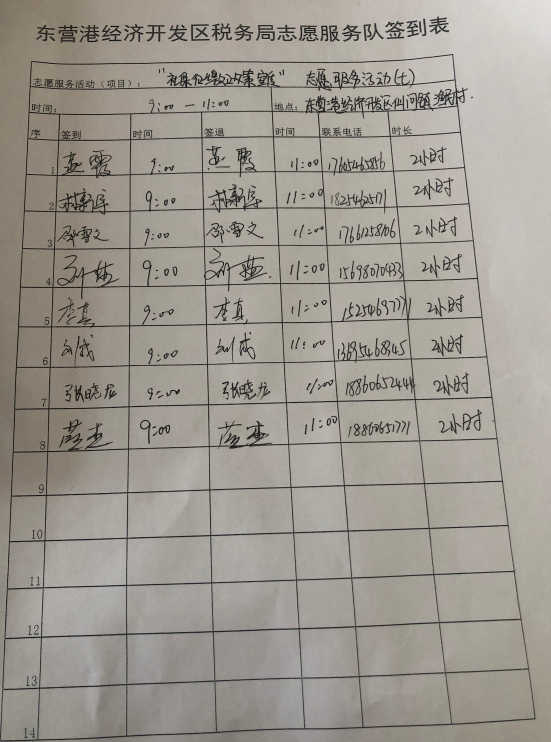 东营港经济开发区税务局志愿服务队签到表
志愿服务活动（项目）： "社保征缴政策宣传" 志愿服务活动(七)
时间： 9:00 — 11:00 地点：东营港经济开发区仙河镇渔村.
序 签到 时间 签退 时间 联系电话 时长
1 燕霞 9:00 燕霞 11:00 2小时
2 9:00 11:00 2小时
3 邵雪文 9:00 邵雪文 11:00 2小时
4 9:00 11:00 15698070933 2小时
5 李真 9:00 李真 11:00 2小时
6 刘成 9:00 刘成 11:00 2小时
7 张晓龙 9:00 张晓龙 11:00 18860652444 2小时
8 9:00 11:00 18860651771 2小时
9
10
11
12
13
14